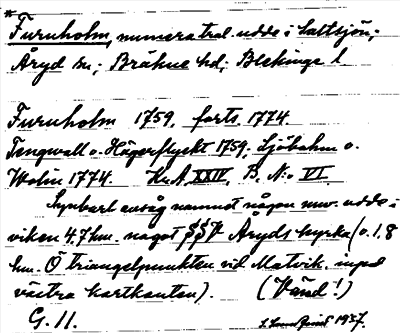 * Furuholm, numera tral. udde i saltsjön;
Åryd sn; Bräkne hd; Blekinge l
Furuholm 1759, forts. 1774
Tengwall o. Hägerflyckt 1759, Sjöbohm o.
Wolin 1774. Kr.A. XXIV, B. N:o VI.
Synbart avsåg namnet någon nuv. udde i
viken 4.7 km. något SSV Åryds kyrka (o. 1,8
km. Ö triangelpunkten vid Matvik, inpå
västra kartkanten). (Vänd!)
G. 11. 1937.